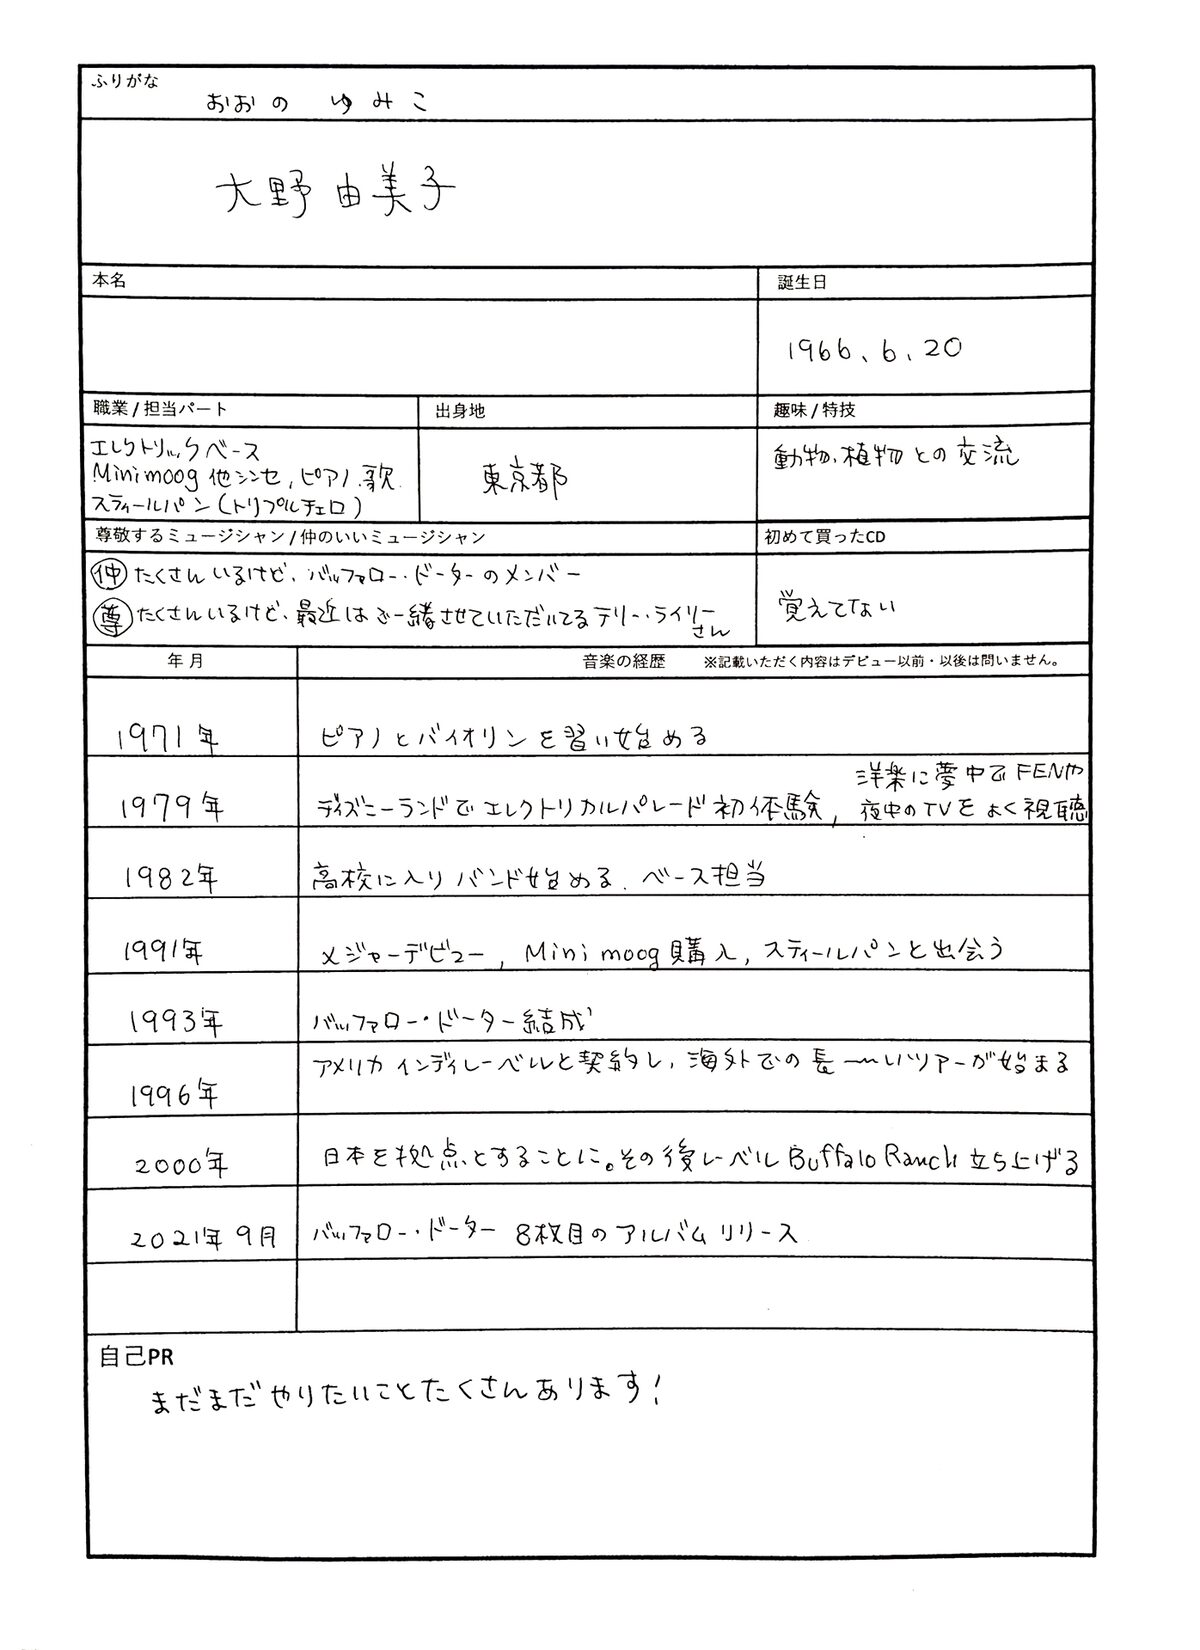 ふりがな
おおの ゆみこ
大野由美子
本名
誕生日
1966、6、20
職業/担当パート
出身地
趣味/特技
エレクトリックベース
Minimoog他シンセ, ピアノ、歌
スティールパン(トリプルチェロ)
東京都
動物、植物との交流
尊敬するミュージシャン/仲のいいミュージシャン
初めて買ったCD
仲 たくさんいるけど、バッファロー・ドーターのメンバー
尊 たくさんいるけど、最近はご一緒させていただいてるテリー・ライリー
さん
覚えてない
年月
音楽の経歴 ※記載いただく内容はデビュー以前・以後は問いません。
1971年 ピアノとバイオリンを習い始める
洋楽に夢中でFENや
1979年 ディズニーランドでエレクトリカルパレード初体験, 夜中のTVをよく視聴
1982年 高校に入りバンド始める、ベース担当
1991年 メジャーデビュー, Minimoog購入, スティールパンと出会う
1993年 バッファロー・ドーター結成
1996年 アメリカインディレーベルと契約し、海外での長〜いツアーが始まる
2000年 日本を拠点とすることに。その後レーベルBuffalo Ranch立ち上げる
2021年9月 バッファロー・ドーター 8枚目のアルバムリリース
自己PR
まだまだやりたいことたくさんあります!